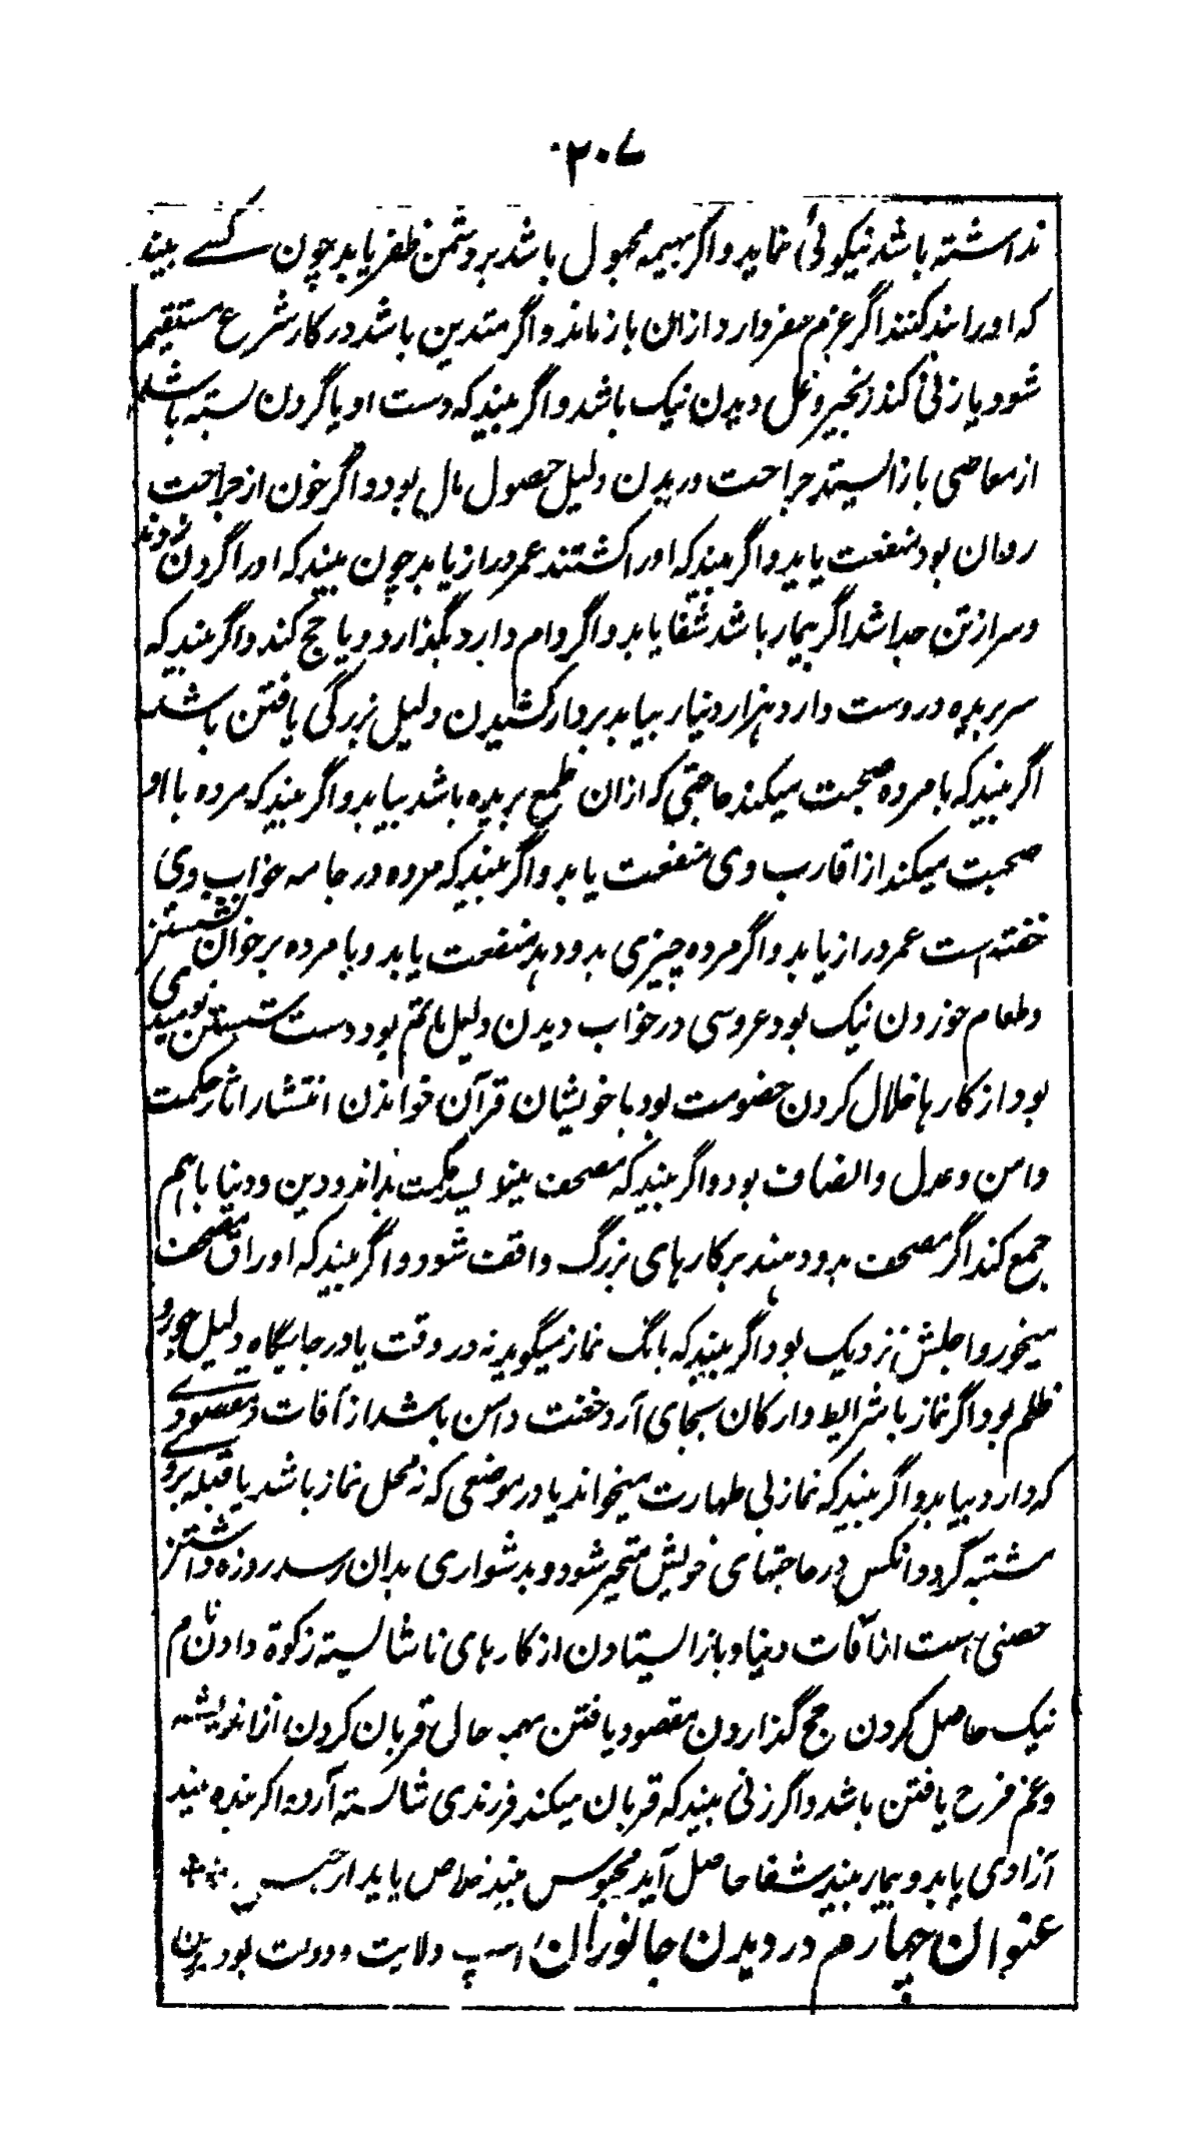 ۲۰۷
نداشته باشد نیکوئی نماید و اگر بهیمه مجهول باشد بر دشمن ظفر یابد چون کسے بیند
که او را بند کنند اگر عزم سفر دارد ازان باز ماند و اگر متدین باشد در کار شرع مستقیم
شود یا زنی کند زنجیر و غل دیدن نیک باشد و اگر بیند که دست او یا گردن بسته باشد
از معاصی باز ایستد جراحت دریدن دلیل حصول مال بود و اگر خون از جراحت
روان بود منفعت یابد و اگر بیند که او را کشتند عمر دراز یابد چون بیند که او را گردن زدند
و سر از تن جدا شد اگر بیمار باشد شفا یابد و اگر وام دارد بگذارد و یا حج کند و اگر بیند که
سر بریده در دست دارد هزار دینار بیابد بردار کشیدن دلیل بزرگی یافتن باشد
اگر بیند که با مرده صحبت میکند حاجتی که ازان طمع بریده باشد بیابد و اگر بیند که مرده با او
صحبت میکند از اقارب وی منفعت یابد و اگر بیند که مرده در جامه خواب وی
خفته است عمر دراز یابد و اگر مرده چیزی بدو دهد منفعت یابد و با مرده بر خوان نشستن
و طعام خوردن نیک بود عروسی در خواب دیدن دلیل ماتم بود دست شستن نومیدی
بود از کارها خلال کردن خصومت بود با خویشان قرآن خواندن انتشار آثار حکمت
و امن و عدل و انصاف بود و اگر بیند که مصحف مینویسد حکمت بداند و دین و دنیا باهم
جمع کند اگر مصحف بدو دهند بر کارهای بزرگ واقف شود و اگر بیند که اوراق مصحف
میخورد اجلش نزدیک بود اگر بیند که بانگ نماز میگوید نه در وقت یا در جایگاه دلیل جور و
ظلم بود اگر نماز با شرایط و ارکان بجای آرد خفت و امن باشد از آفات و مقصودے
که دارد بیابد و اگر بیند که نماز بی طهارت میخواند یا در موضعی که نه محل نماز باشد یا قبله برو
مشتبه گردد انکس در حاجتهای خویش متحیر شود و بدشواری بدان رسد روزه داشتن
حصنی است از آفات دنیا و باز ایستادن از کارهای ناشایسته زکوة دادن نام
نیک حاصل کردن حج گذاردن مقصود یافتن بهمه حالی قربان کردن از اندیشه
و غم فرح یافتن باشد و اگر زنی بیند که قربان میکند فرزندی شایسته آرد اگر بنده بیند
آزادی یابد و بیمار بیند شفا حاصل آید محبوس بیند خلاص یابد از حبس
عنوان چهارم در دیدن جانوران اسپ ولایت و دولت بود بدین